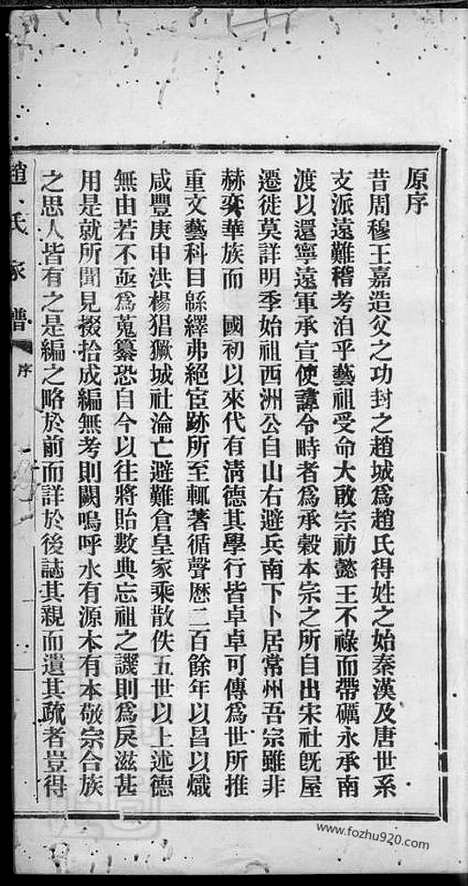 原序
昔周穆王嘉造父之功封之趙城為趙氏得姓之始秦漢及唐世系
支派遠難稽考洎乎藝祖受命大啟宗祊懿王不祿而帶礪永承南
渡以還寧遠軍承宣使諱令畤者為承穀本宗之所自出宋社既屋
遷徙莫詳明季始祖西洲公自山右避兵南下卜居常州吾宗雖非
赫奕華族而　國初以來代有清德其學行皆卓卓可傳為世所推
重文藝科目緜繹弗絕宦跡所至輒著循聲歷二百餘年以昌以熾
咸豐庚申洪楊猖獗城社淪亡避難倉皇家乘散佚五世以上述德
無由若不亟為蒐纂恐自今以往將貽數典忘祖之譏則為戾滋甚
用是就所聞見掇拾成編無考則闕嗚呼水有源本有本敬宗合族
之思人皆有之是編之略於前而詳於後誌其親而遺其疏者豈得
趙氏家譜
序
www.fozhu920.com